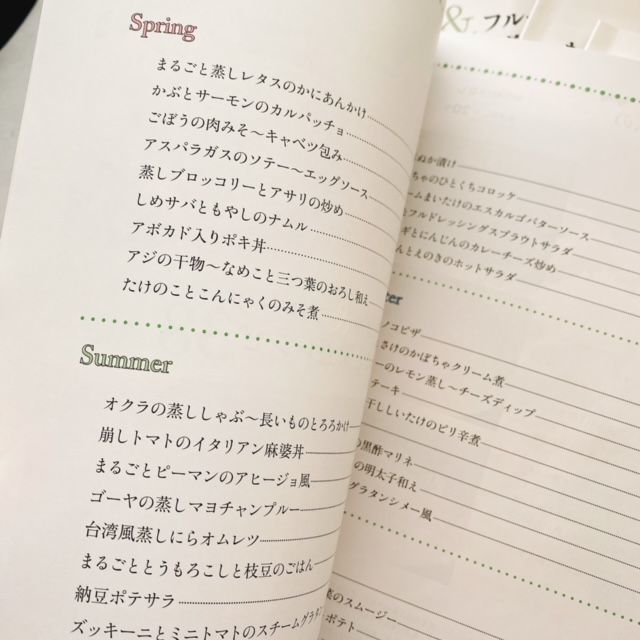 Spring
まるごと蒸しレタスのかにあんかけ
かぶとサーモンのカルパッチョ
ごぼうの肉みそ〜キャベツ包み
アスパラガスのソテー〜エッグソース
蒸しブロッコリーとアサリの炒め
しめサバともやしのナムル
アボカド入りポキ丼
アジの干物〜なめこと三つ葉のおろし和え
たけのことこんにゃくのみそ煮
Summer
オクラの蒸ししゃぶ〜長いものとろろかけ
崩しトマトのイタリアン麻婆丼
まるごとピーマンのアヒージョ風
ゴーヤの蒸しマヨチャンプルー
台湾風蒸しにらオムレツ
まるごととうもろこしと枝豆のごはん
納豆ポテサラ
ズッキーニとミニトマトのスチームグラタン
& フル
ぬか漬け
ちゃのひとくちコロッケ
ームまいたけのエスカルゴバターソース
フルドレッシングスプラウトサラダ
ギとにんじんのカレーチーズ炒め
んとえのきのホットサラダ
ter
ノコピザ
さけのかぼちゃクリーム煮
ーのレモン蒸し〜チーズディップ
テーキ
干ししいたけのピリ辛煮
の黒酢マリネ
の明太子和え
グラタンシメー風
菜のスムージー
ポテト